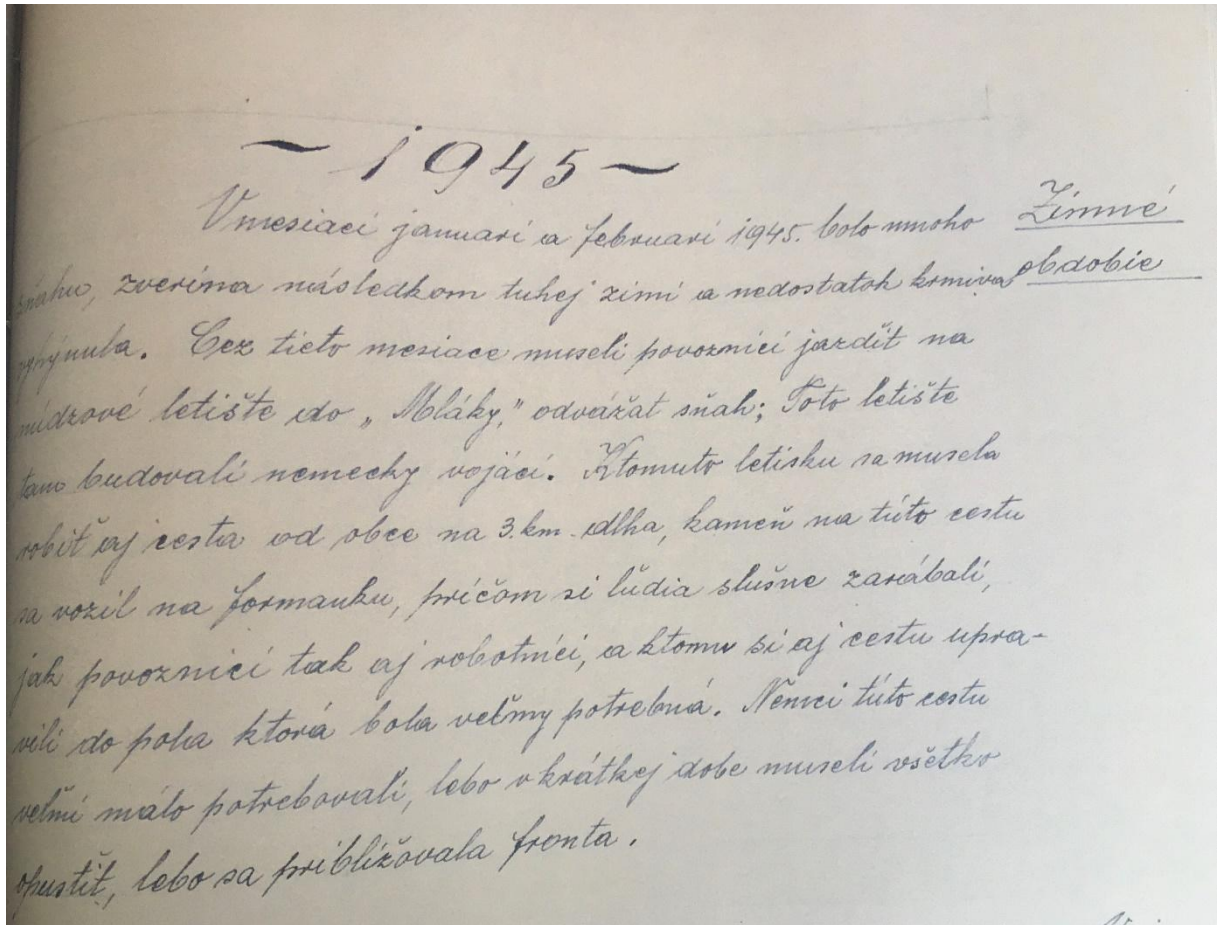 ~ 1945 ~
V mesiaci januari a februari 1945. bolo mnoho
Zimné
obdobie
sňahu, zverina následkom tuhej zimi a nedostatok krmiva
vyhýnula. Cez tieto mesiace museli povoznici jazdit na
núdzové letište do „Mláky," odvážat sňah; Toto letište
tam budovali nemecky vojáci. Ktomuto letisku sa musela
robiť aj cesta od obce na 3. km. dlha, kameň na túto cestu
sa vozil na formanku, pričom si ludia slušne zarábali,
jak povoznici tak aj robotníci, a ktomu si aj cestu upra-
vili do pola ktorá bola veľmy potrebná. Nemci túto cestu
veľmi málo potrebovali, lebo v krátkej dobe museli všetko
opustiť, lebo sa približovala fronta.